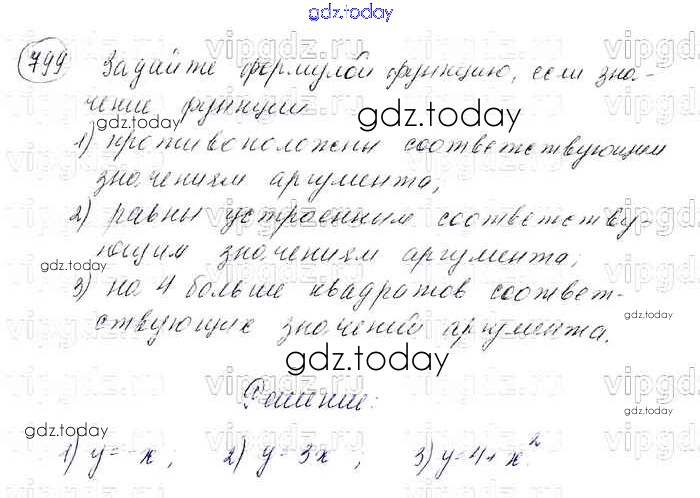 gdz.today
799 Задайте формулой функцию, если зна-
чение функции
gdz.today
1) противоположны соответствующим
значениям аргумента;
2) равны утроенным соответству-
ющим значениям аргумента;
gdz.today
3) на 4 больше квадратов соответ-
ствующих значений аргумента.
gdz.today
Решение:
gdz.today
gdz.today
1) y=-x; 2) y=3x; 3) y=4+x².